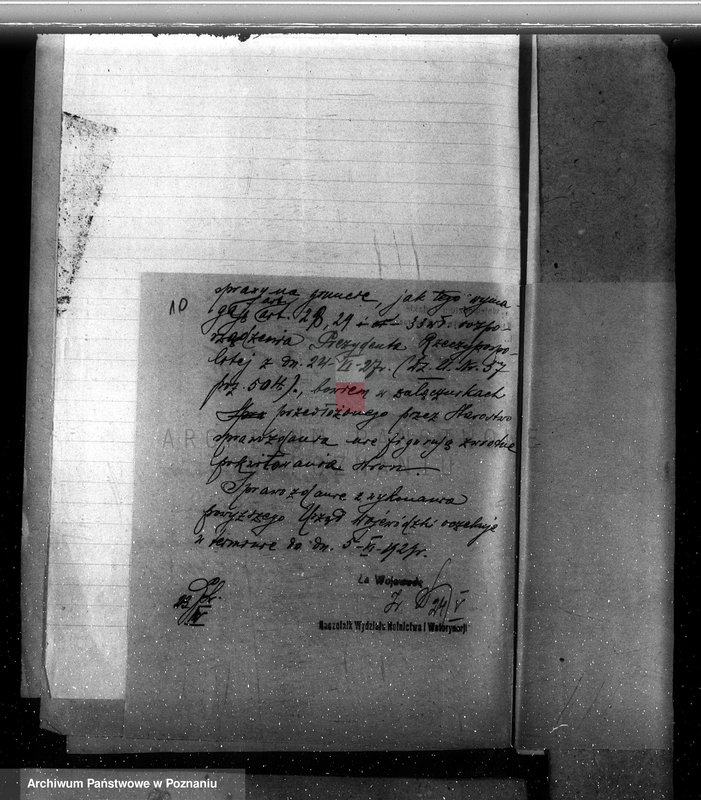 10
sprawy na gruncie, jak tego wyma-
gają art. 28, 29 i 33 rozpo-
rządzenia Prezydenta Rzeczypospo-
litej z dn. 24-VI-27r. (Dz. U. Nr. 57
poz. 504)., bowiem w załącznikach
przedłożonego przez Starostwo
sprawozdania nie figurują zwrotne
pokwitowania stron.
Sprawozdanie z wykonania
powyższego Urząd Wojewódzki oczekuje
w terminie do dn. 5-VI-1929r.
Za Wojewodę
24/V
23/IV
Naczelnik Wydziału Rolnictwa i Weterynarji
Archiwum Państwowe w Poznaniu